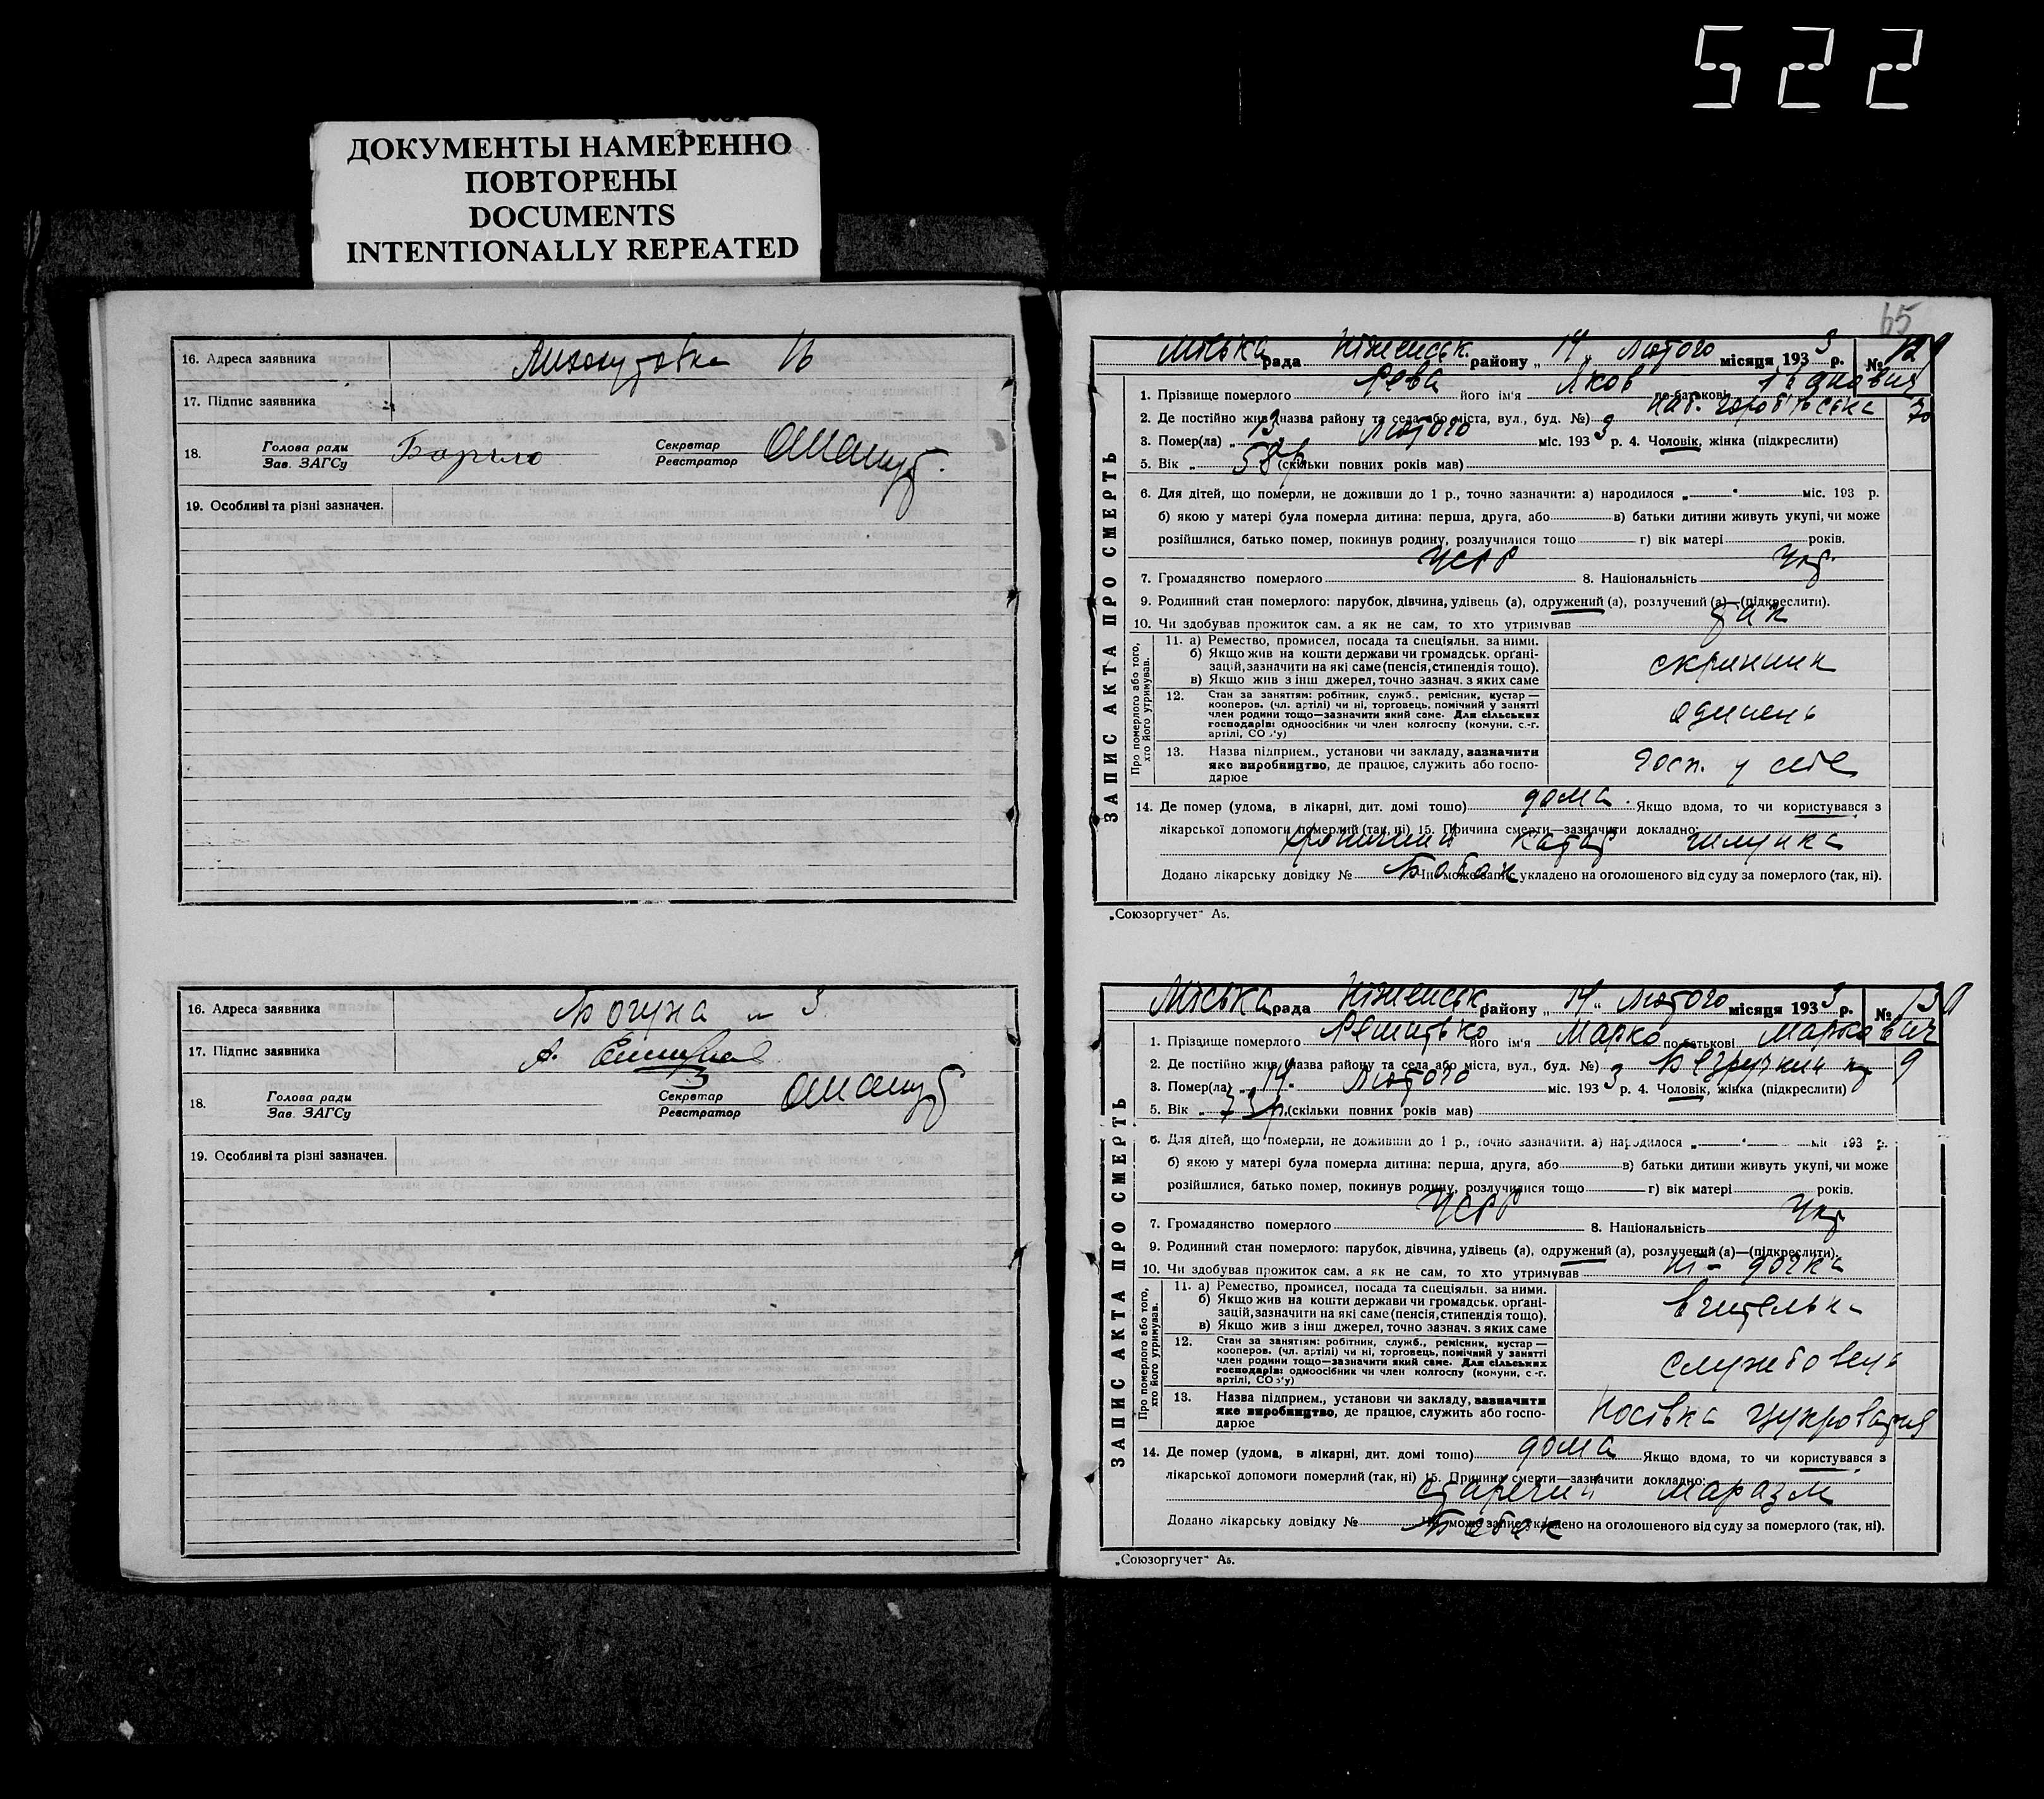 522
ДОКУМЕНТЫ НАМЕРЕННО
ПОВТОРЕНЫ
DOCUMENTS
INTENTIONALLY REPEATED
16. Адреса заявника
17. Підпис заявника
18. Голова ради
Зав. ЗАГСу
Секретар
Реєстратор
19. Особливі та різні зазначен.
16. Адреса заявника Богуна 3
17. Підпис заявника
18. Голова ради
Зав. ЗАГСу
Секретар
Реєстратор
19. Особливі та різні зазначен.
65
ЗАПИС АКТА ПРО СМЕРТЬ
Міська рада Ніженськ. району „ 14 „ Лютого місяця 1933 р. № 129
1. Прізвище померлого Рева його ім'я Яков по батькові
2. Де постійно жив (назва району та села або міста, вул., буд. №) 30
3. Помер(ла) „ 13 Лютого міс. 1933 р. 4. Чоловік, жінка (підкреслити)
5. Вік „ 58 р. (скільки повних років мав)
6. Для дітей, що померли, не доживши до 1 р., точно зазначити: а) народилося „ " міс. 193 р.
б) якою у матері була померла дитина: перша, друга, або в) батьки дитини живуть укупі, чи може
розійшлися, батько помер, покинув родину, розлучилися тощо г) вік матері років.
7. Громадянство померлого УСРР 8. Національність Укр.
9. Родинний стан померлого: парубок, дівчина, удівець (а), одружений (а), розлучений (а)—(підкреслити).
10. Чи здобував прожиток сам, а як не сам, то хто утримував так
Про померлого або того, хто його утримував.
11. а) Ремество, промисел, посада та спеціяльн. за ними.
б) Якщо жив на кошти держави чи громадськ. орґані-
зацій, зазначити на які саме (пенсія, стипендія тощо).
в) Якщо жив з інш джерел, точно зазнач. з яких саме
12. Стан за заняттям: робітник, служб., ремісник, кустар—
кооперов. (чл. артілі) чи ні, торговець, помічний у занятті
член родини тощо—зазначити який саме. Для сільських
господарів: одноосібник чи член колгоспу (комуни, с.-г.
артілі, СОЗ'у)
одинець
13. Назва підприєм., установи чи закладу, зазначити
яке виробництво, де працює, служить або госпо-
дарює
госп. у себе
14. Де помер (удома, в лікарні, дит. домі тощо) дома. Якщо вдома, то чи користувався з
лікарської допомоги померлий (так, ні) 15. Причина смерти—зазначити докладно:
хронічний катар шлунка
Додано лікарську довідку № Чи може запис укладено на оголошеного від суду за померлого (так, ні).
„Союзоргучет" А5.
ЗАПИС АКТА ПРО СМЕРТЬ
Міська рада Ніженськ району „ 14 „ Лютого місяця 1933 р. № 130
1. Прізвище померлого його ім'я Марко по батькові Маркович
2. Де постійно жив (назва району та села або міста, вул., буд. №) 9
3. Помер(ла) „ 14. Лютого міс. 1933 р. 4. Чоловік, жінка (підкреслити)
5. Вік „ 73 р. (скільки повних років мав)
6. Для дітей, що померли, не доживши до 1 р., точно зазначити: а) народилося „ " міс 193 р.
б) якою у матері була померла дитина: перша, друга, або в) батьки дитини живуть укупі, чи може
розійшлися, батько помер, покинув родину, розлучилися тощо г) вік матері років.
7. Громадянство померлого УСРР 8. Національність Укр
9. Родинний стан померлого: парубок, дівчина, удівець (а), одружений (а), розлучений (а)—(підкреслити).
10. Чи здобував прожиток сам, а як не сам, то хто утримував ні - дочка
Про померлого або того, хто його утримував.
11. а) Ремество, промисел, посада та спеціяльн. за ними.
б) Якщо жив на кошти держави чи громадськ. орґані-
зацій, зазначити на які саме (пенсія, стипендія тощо).
в) Якщо жив з інш джерел, точно зазнач. з яких саме
вчителька
12. Стан за заняттям: робітник, служб., ремісник, кустар—
кооперов. (чл. артілі) чи ні, торговець, помічний у занятті
член родини тощо—зазначити який саме. Для сільських
господарів: одноосібник чи член колгоспу (комуни, с.-г.
артілі, СОЗ'у)
службовець
13. Назва підприєм., установи чи закладу, зазначити
яке виробництво, де працює, служить або госпо-
дарює
Носівка цукроварня
14. Де помер (удома, в лікарні, дит. домі тощо) дома Якщо вдома, то чи користувався з
лікарської допомоги померлий (так, ні) 15. Причина смерти—зазначити докладно:
старечий маразм
Додано лікарську довідку № Чи може запис укладено на оголошеного від суду за померлого (так, ні).
„Союзоргучет" А5.